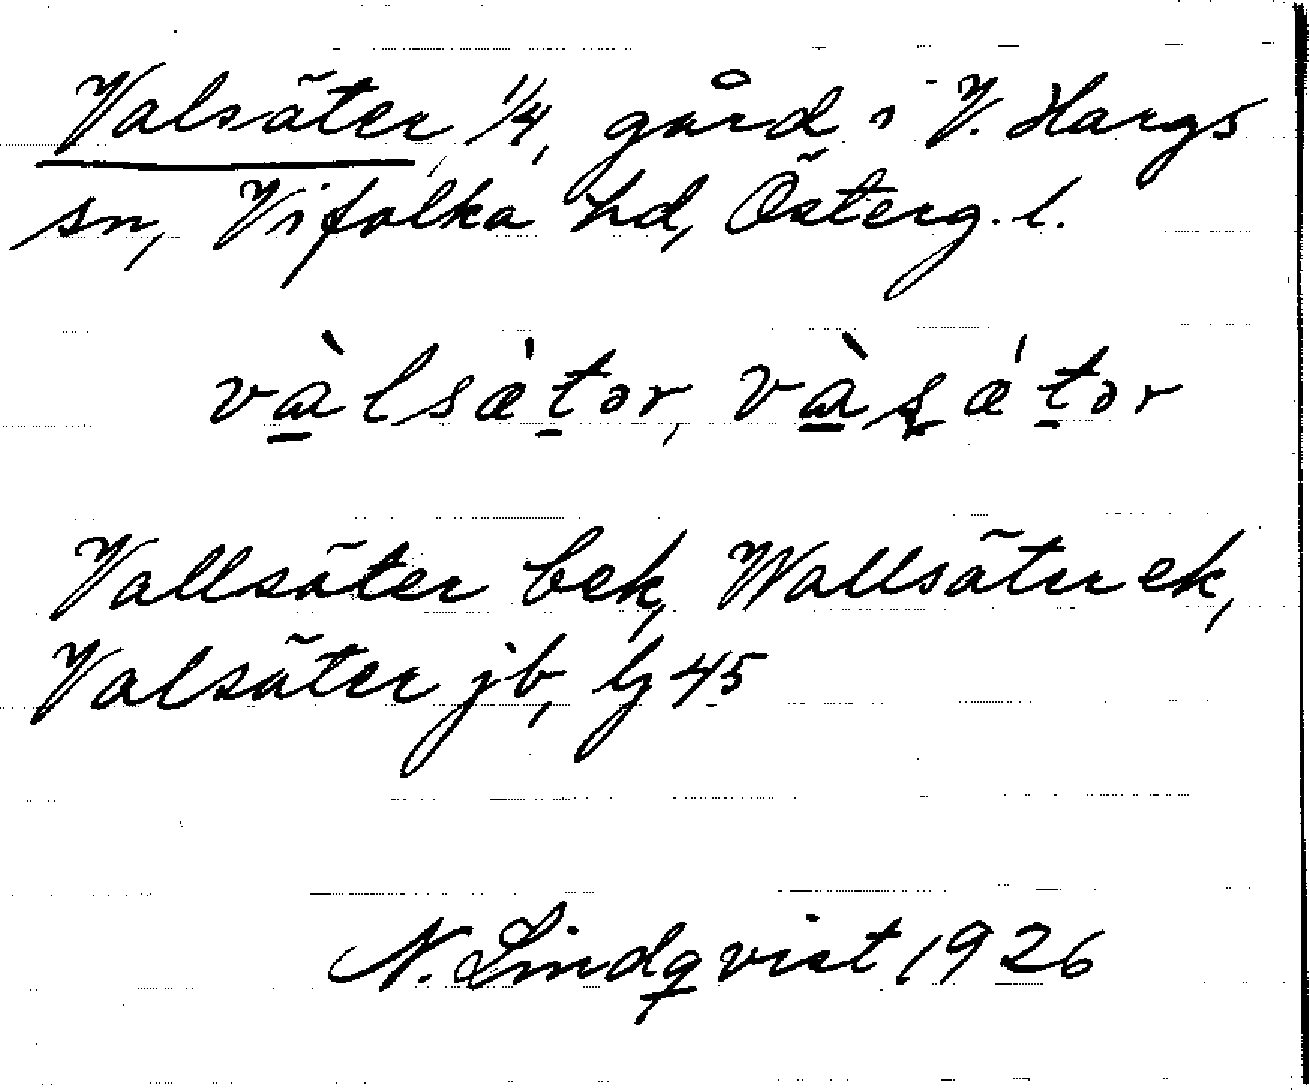 Valsäter, 1/4, gård i V. Hargs
sn, Vifolka hd, Österg. l.
và̱lsǽṯər, và̱ʂǽṯər
Vallsäter bek, Wallsäter ek,
Valsäter jb, lj 45
N. Lindqvist 1926